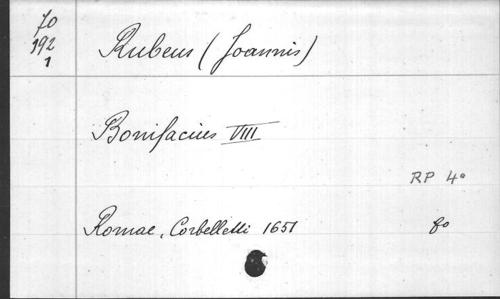 70
192
1
Rubeus (Joannis)
Bonifacius VIII
RP 4°
Romae, Corbelletti 1651 fo